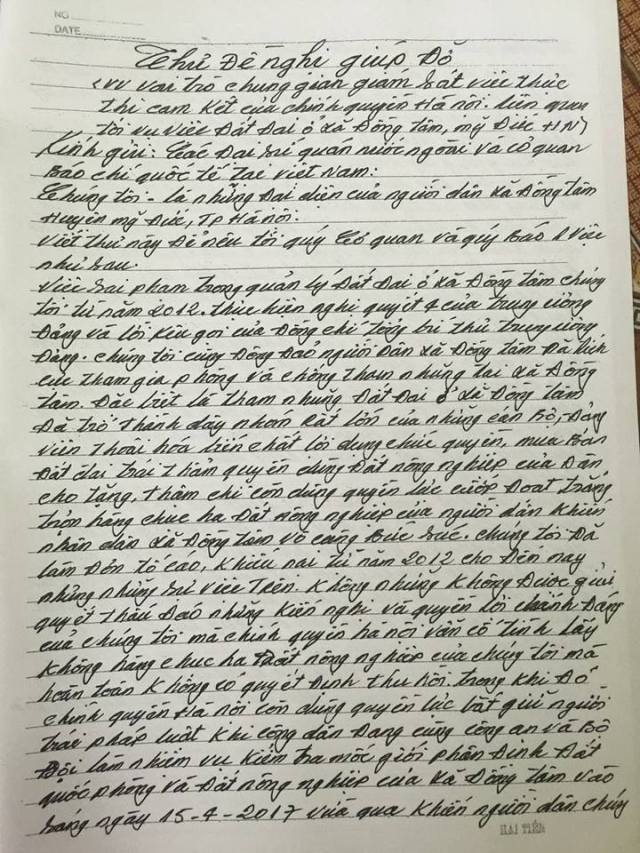 NO
DATE
Thư Đề nghị giúp Đỡ
(vv vai trò chung gian giám sát việc thực
thi cam kết của chính quyền Hà nội. liên quan
tới vụ việc Đất Đai ở xã Đồng tâm, mỹ Đức, HN)
Kính gửi: Các Đại sứ quán nước ngoài và cơ quan
Báo chí quốc tế tại việt Nam:
Chúng tôi - là những Đại diện của người dân xã Đồng tâm
Huyện mỹ Đức, TP Hà nội.
viết thư này Để nêu tới quý Cơ quan và quý Báo 1 việc
như sau.
việc sai phạm trong quản lý Đất Đai ở xã Đồng tâm chúng
tôi từ năm 2012. thực hiện nghị quyết 4 của trung ương
Đảng và lời kêu gọi của Đồng chí tổng bí thư trung ương
Đảng. chúng tôi cùng Đông Đảo người Dân xã Đồng tâm Đã tích
cực tham gia phòng và chống tham nhũng tại xã Đồng
tâm. Đặc biệt là tham nhũng Đất Đai ở xã Đồng tâm
Đã trở thành dây nhóm rất lớn của những cán Bộ, Đảng
viên thoái hóa biến chất lợi dụng chức quyền, mua Bán
Đất đai trái thẩm quyền dùng Đất nông nghiệp của Dân
cho tặng, thậm chí còn dùng quyền lực cướp Đoạt trắng
trợn hàng chục ha Đất nông nghiệp của người dân khiến
nhân dân xã Đồng tâm vô cùng Bức xúc. chúng tôi Đã
làm Đơn tố cáo, khiếu nại từ năm 2012 cho Đến nay
nhưng những sự việc trên. không những không Được giải
quyết thấu Đáo những kiến nghị và quyền lợi chính Đáng
của chúng tôi mà chính quyền hà nội vẫn cố tình lấy
không hàng chục ha Đất nông nghiệp của chúng tôi mà
hoàn toàn không có quyết Định thu hồi. trong khi Đó
chính quyền Hà nội còn dùng quyền lực bắt giữ người
trái pháp luật khi công dân Đang cùng công an và Bộ
Đội làm nhiệm vụ kiểm tra mốc giới phân Định Đất
quốc phòng và Đất nông nghiệp của xã Đồng tâm vào
sáng ngày 15-4-2017 vừa qua khiến người dân chúng
HẢI TIẾN